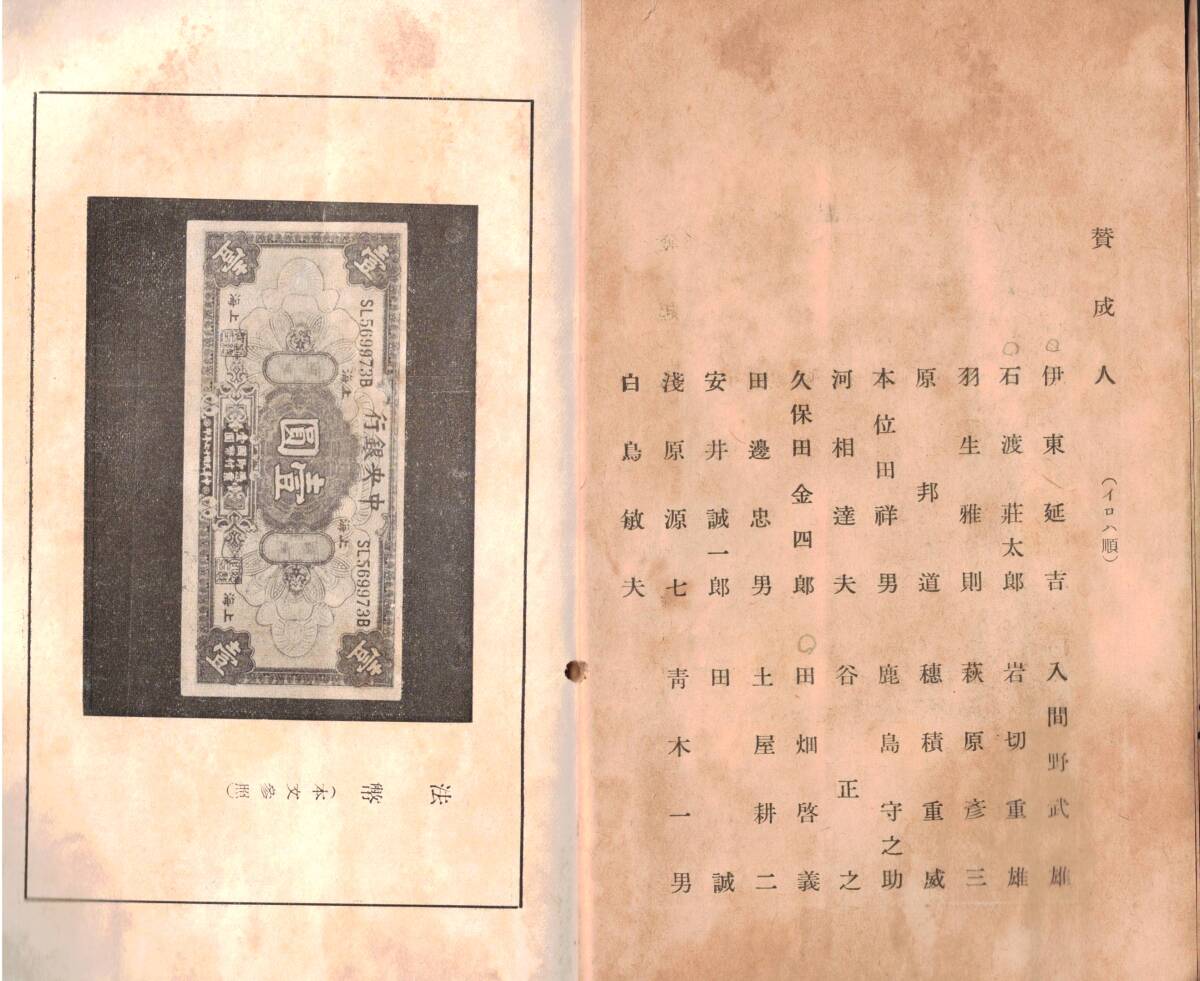 賛成人 (イロハ順)
○伊東延吉 入間野武雄
○石渡莊太郎 岩切重雄
羽生雅則 萩原彥三
原邦道 穗積重威
本位田祥男 鹿島守之助
河相達夫 谷正之
久保田金四郎 ○田畑啓義
田邊忠男 土屋耕二
安井誠一郎 田誠
淺原源七 靑木一男
白鳥敏夫
法幣(本文參照)
中央銀行
壹圓
壹
壹
壹
壹
SL569973B
SL569973B
上海
上海
上海
上海